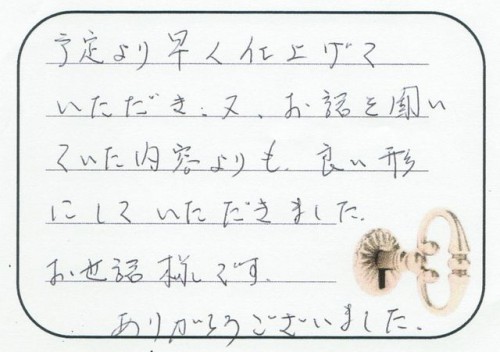 予定より早く仕上げて
いただき、又、お話を聞い
ていた内容よりも、良い形
にしていただきました。
お世話様です。
ありがとうございました。